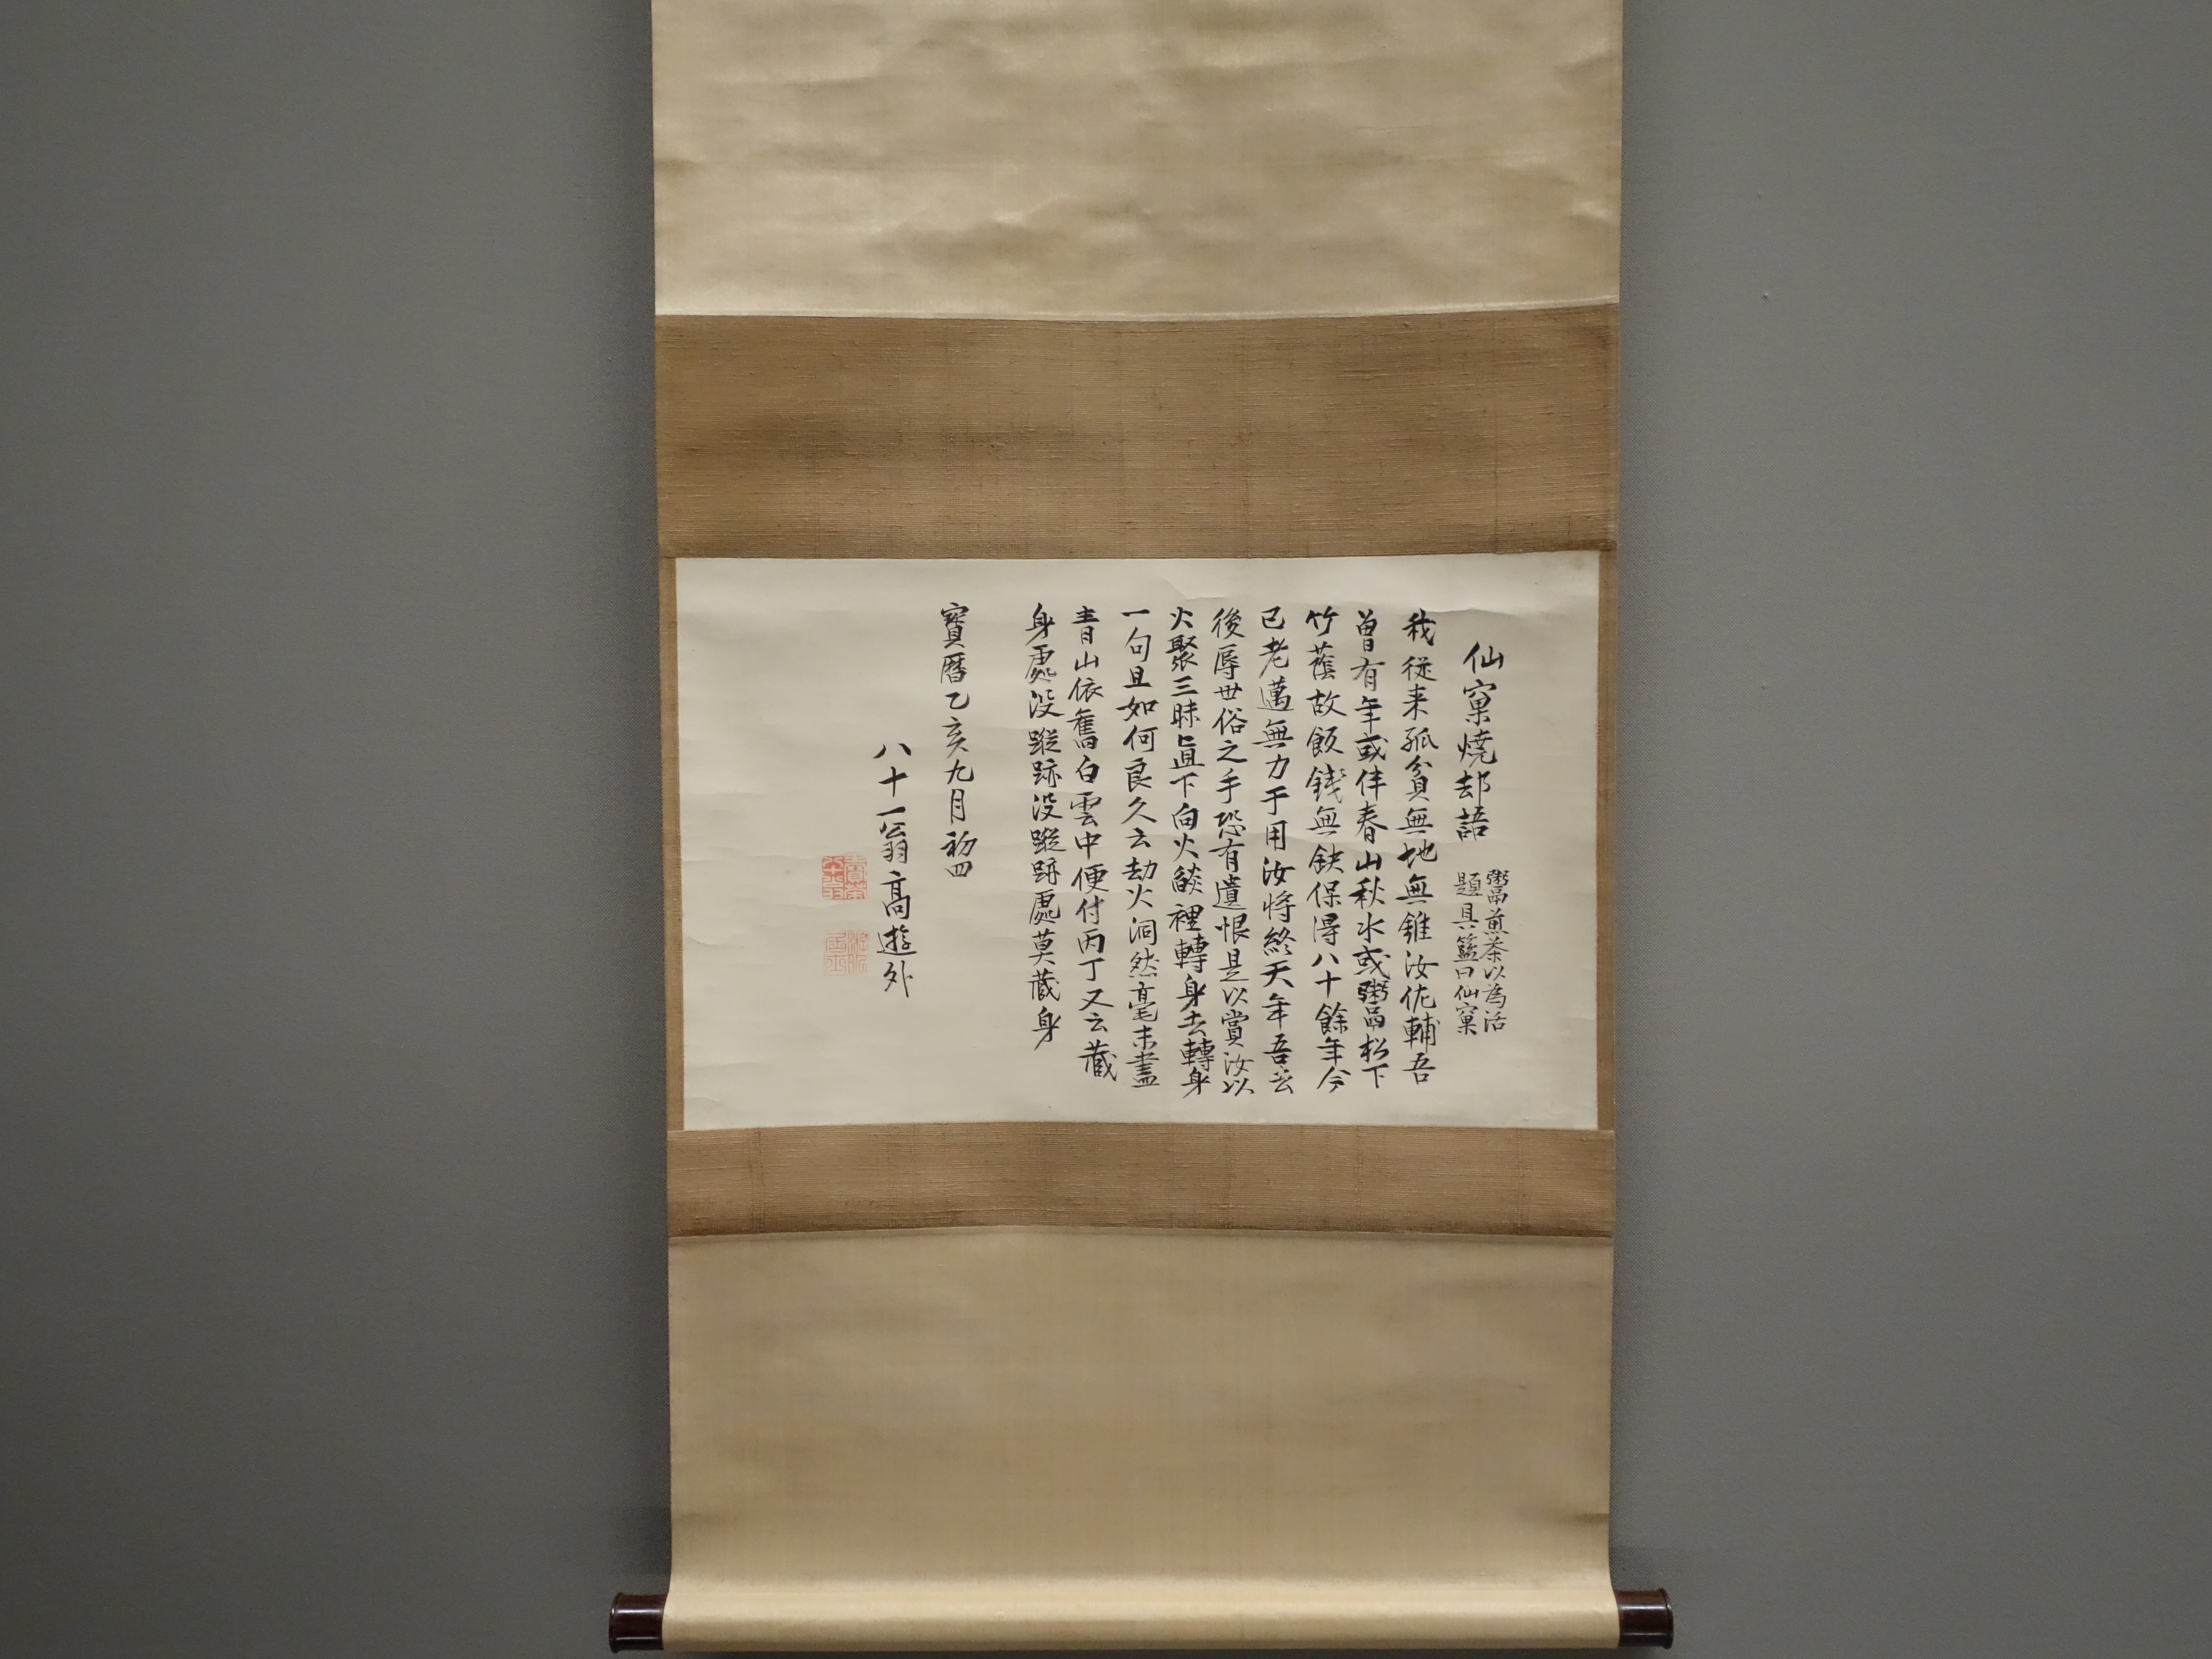 仙窠燒却語
鬻煎茶以為活
題具籃曰仙窠
我從来孤貧無地無錐汝佐輔吾
曽有年或伴春山秋水或鬻松下
竹蔭故飯錢無缺保得八十餘年今
已老邁無力于用汝将終天年吾去
後辱世俗之手恐有遺恨是以賞汝以
火聚三昧直下向火燄裡轉身去轉身
一句且如何良久云劫火洞然毫末盡
青山依舊白雲中便付丙丁又云藏
身處没蹤跡没蹤跡處莫藏身
寳暦乙亥九月初四
八十一翁高遊外